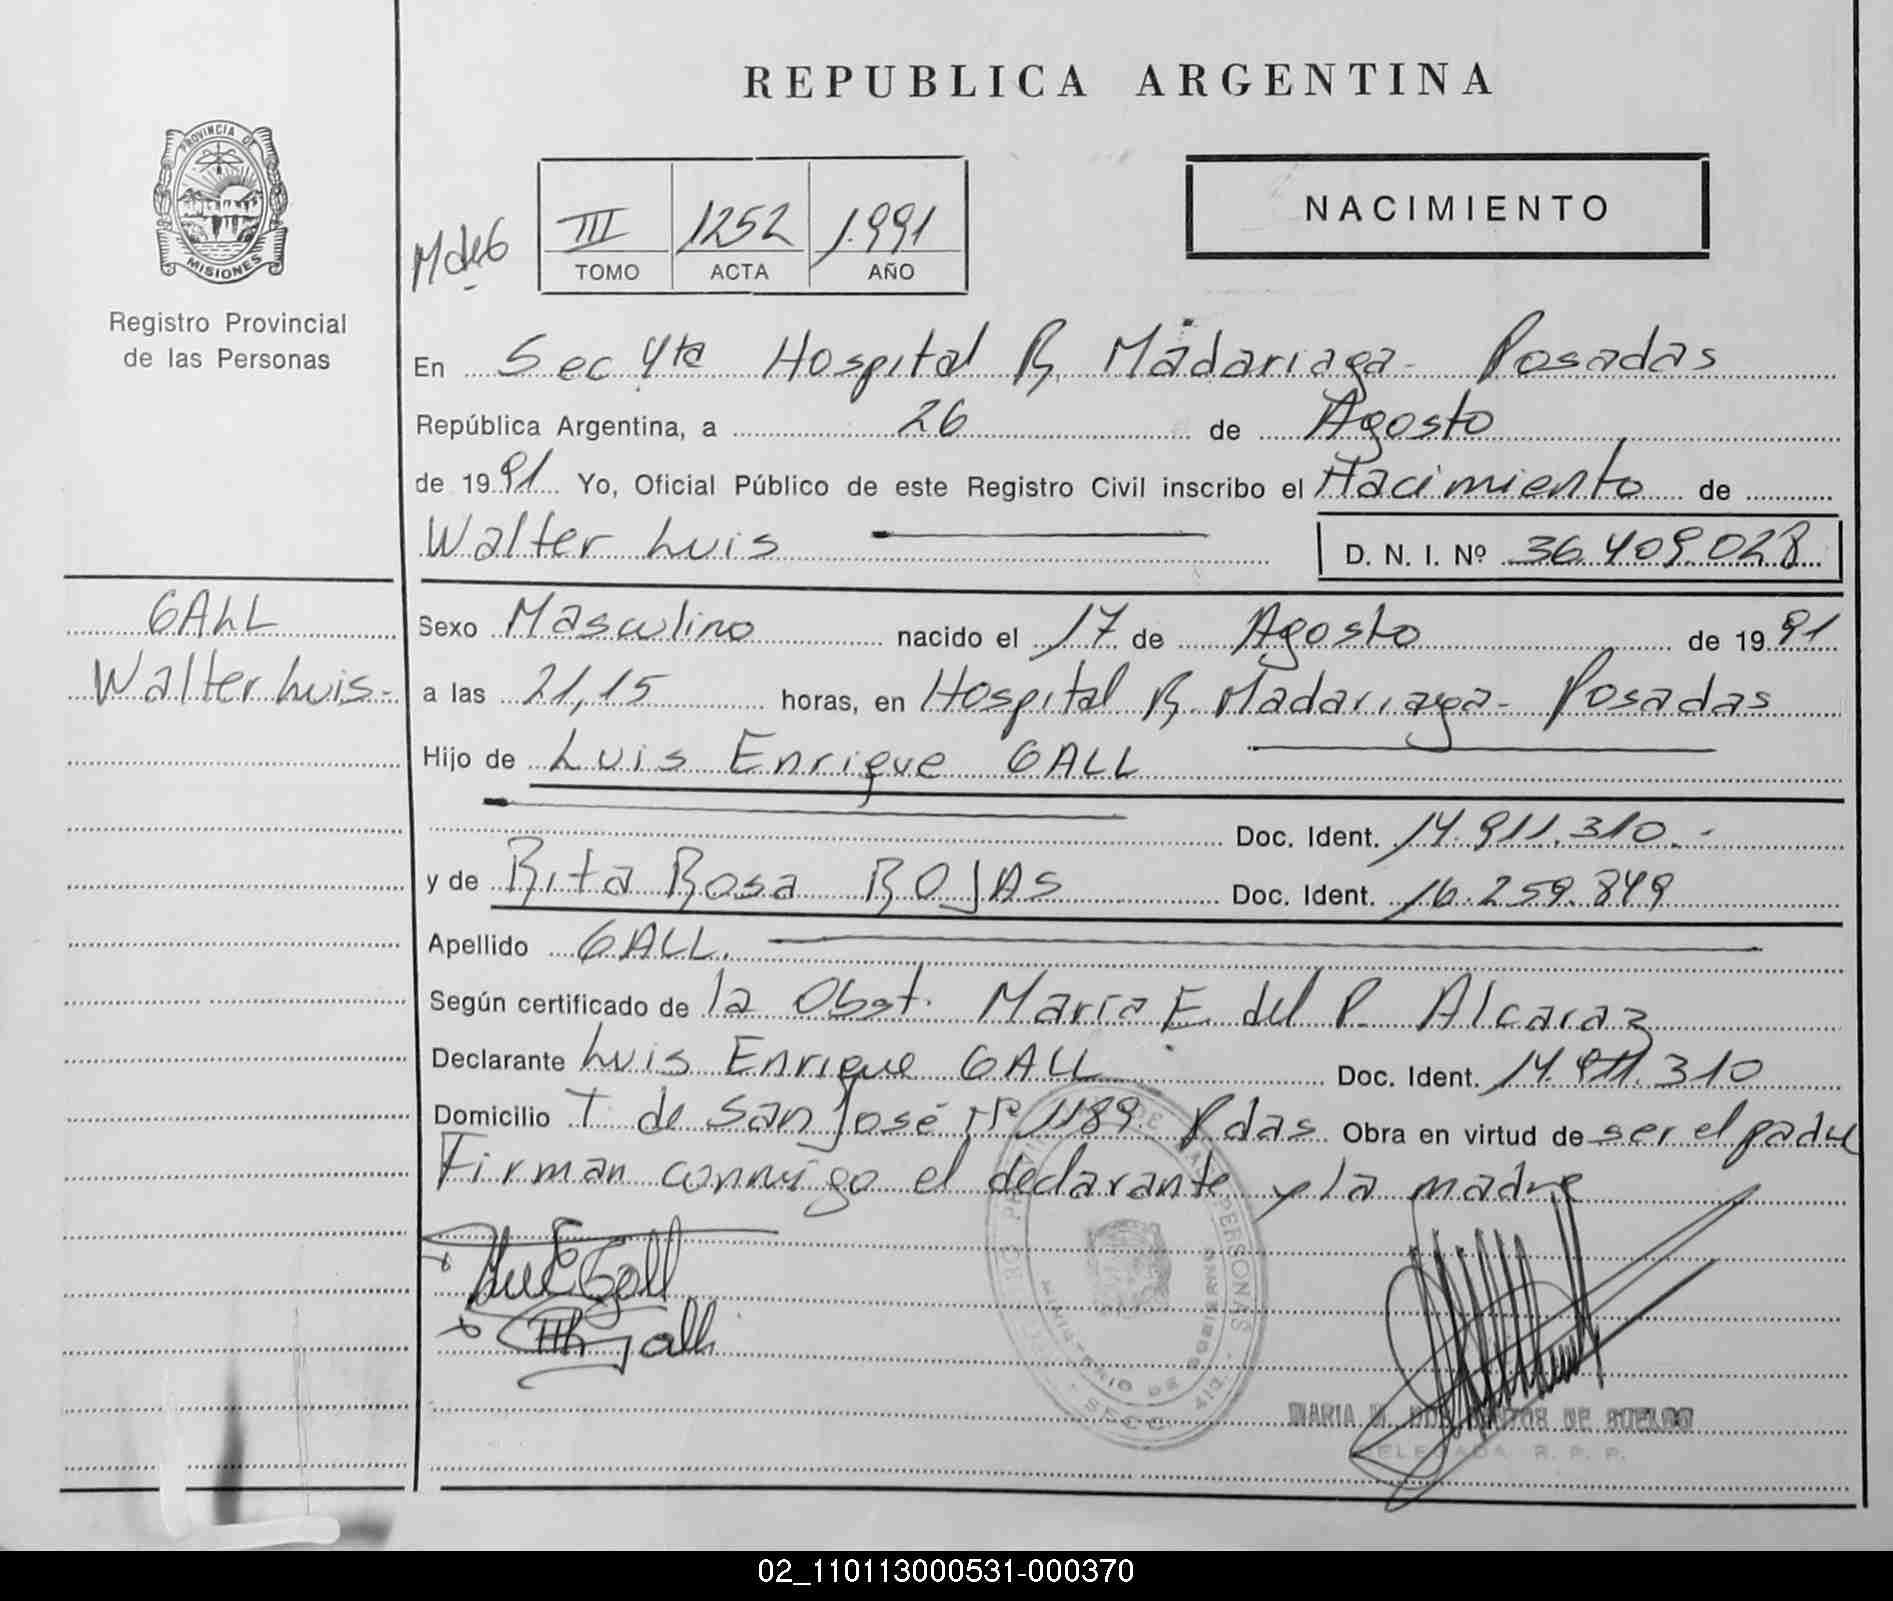 REPUBLICA ARGENTINA
PROVINCIA DE
MISIONES
Registro Provincial
de las Personas
NACIMIENTO
M de G
III 1252 1.991
TOMO ACTA AÑO
En Sec 4ta Hospital R. Madariaga - Posadas
República Argentina, a 26 de Agosto
de 1991 Yo, Oficial Público de este Registro Civil inscribo el Nacimiento de
Walter Luis D. N. I. Nº 36.409.028
GALL
Walter Luis.-
Sexo Masculino nacido el 17 de Agosto de 1991
a las 21,15 horas, en Hospital R. Madariaga - Posadas
Hijo de Luis Enrique GALL
Doc. Ident. 14.911.310.-
y de Rita Rosa ROJAS Doc. Ident. 16.259.849
Apellido GALL.
Según certificado de la Obst. María E. del P. Alcaraz
Declarante Luis Enrique GALL Doc. Ident. 14.911.310
Domicilio T. de San José Nº 1189 Pdas Obra en virtud de ser el padre
Firman conmigo el declarante y la madre
PERSONAS
MINISTERIO DE GOBIERNO
SECC. 4ta.
MARIA DE SUELDO
DELEGADA R. P. P.
02_110113000531-000370